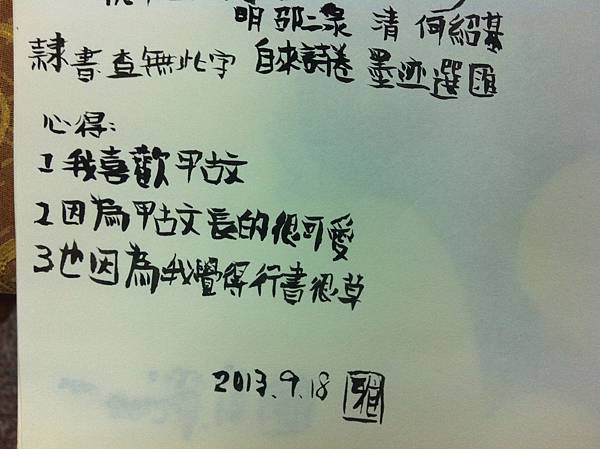 明 邵二泉 清 何紹基
隸書:查無此字 自來詩卷 墨迹選匯
心得:
1 我喜歡甲古文
2 因為甲古文長的很可愛
3 也因為我覺得行書很草
2013.9.18